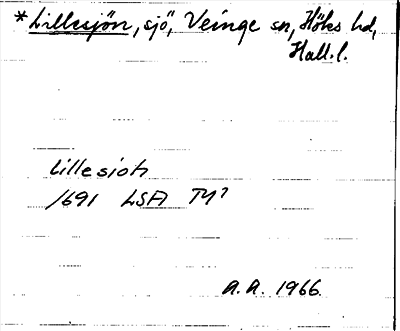 *Lillesjön, sjö, Veinge sn, Höks hd,
Hall.l.
Lillesiöh
1691 LSA TY?
A.A. 1966.